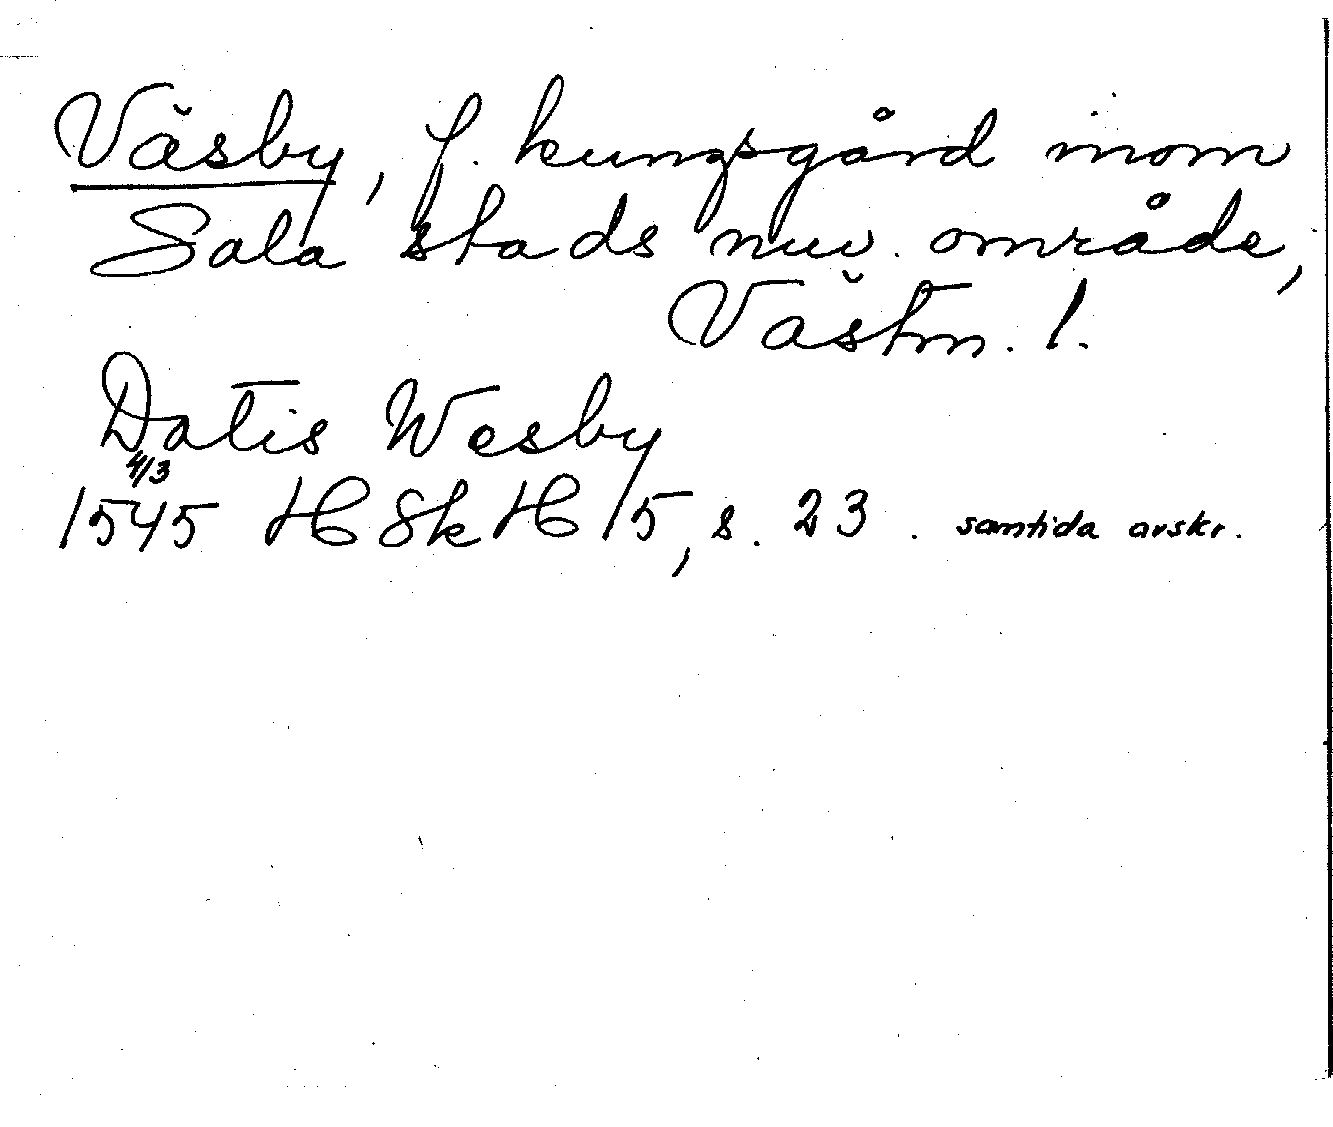 Väsby, f. kungsgård inom
Sala stads nuv. område,
Västm. l.
Datis Wesby
4/3
1545 HSkH 15, s. 23. samtida avskr.